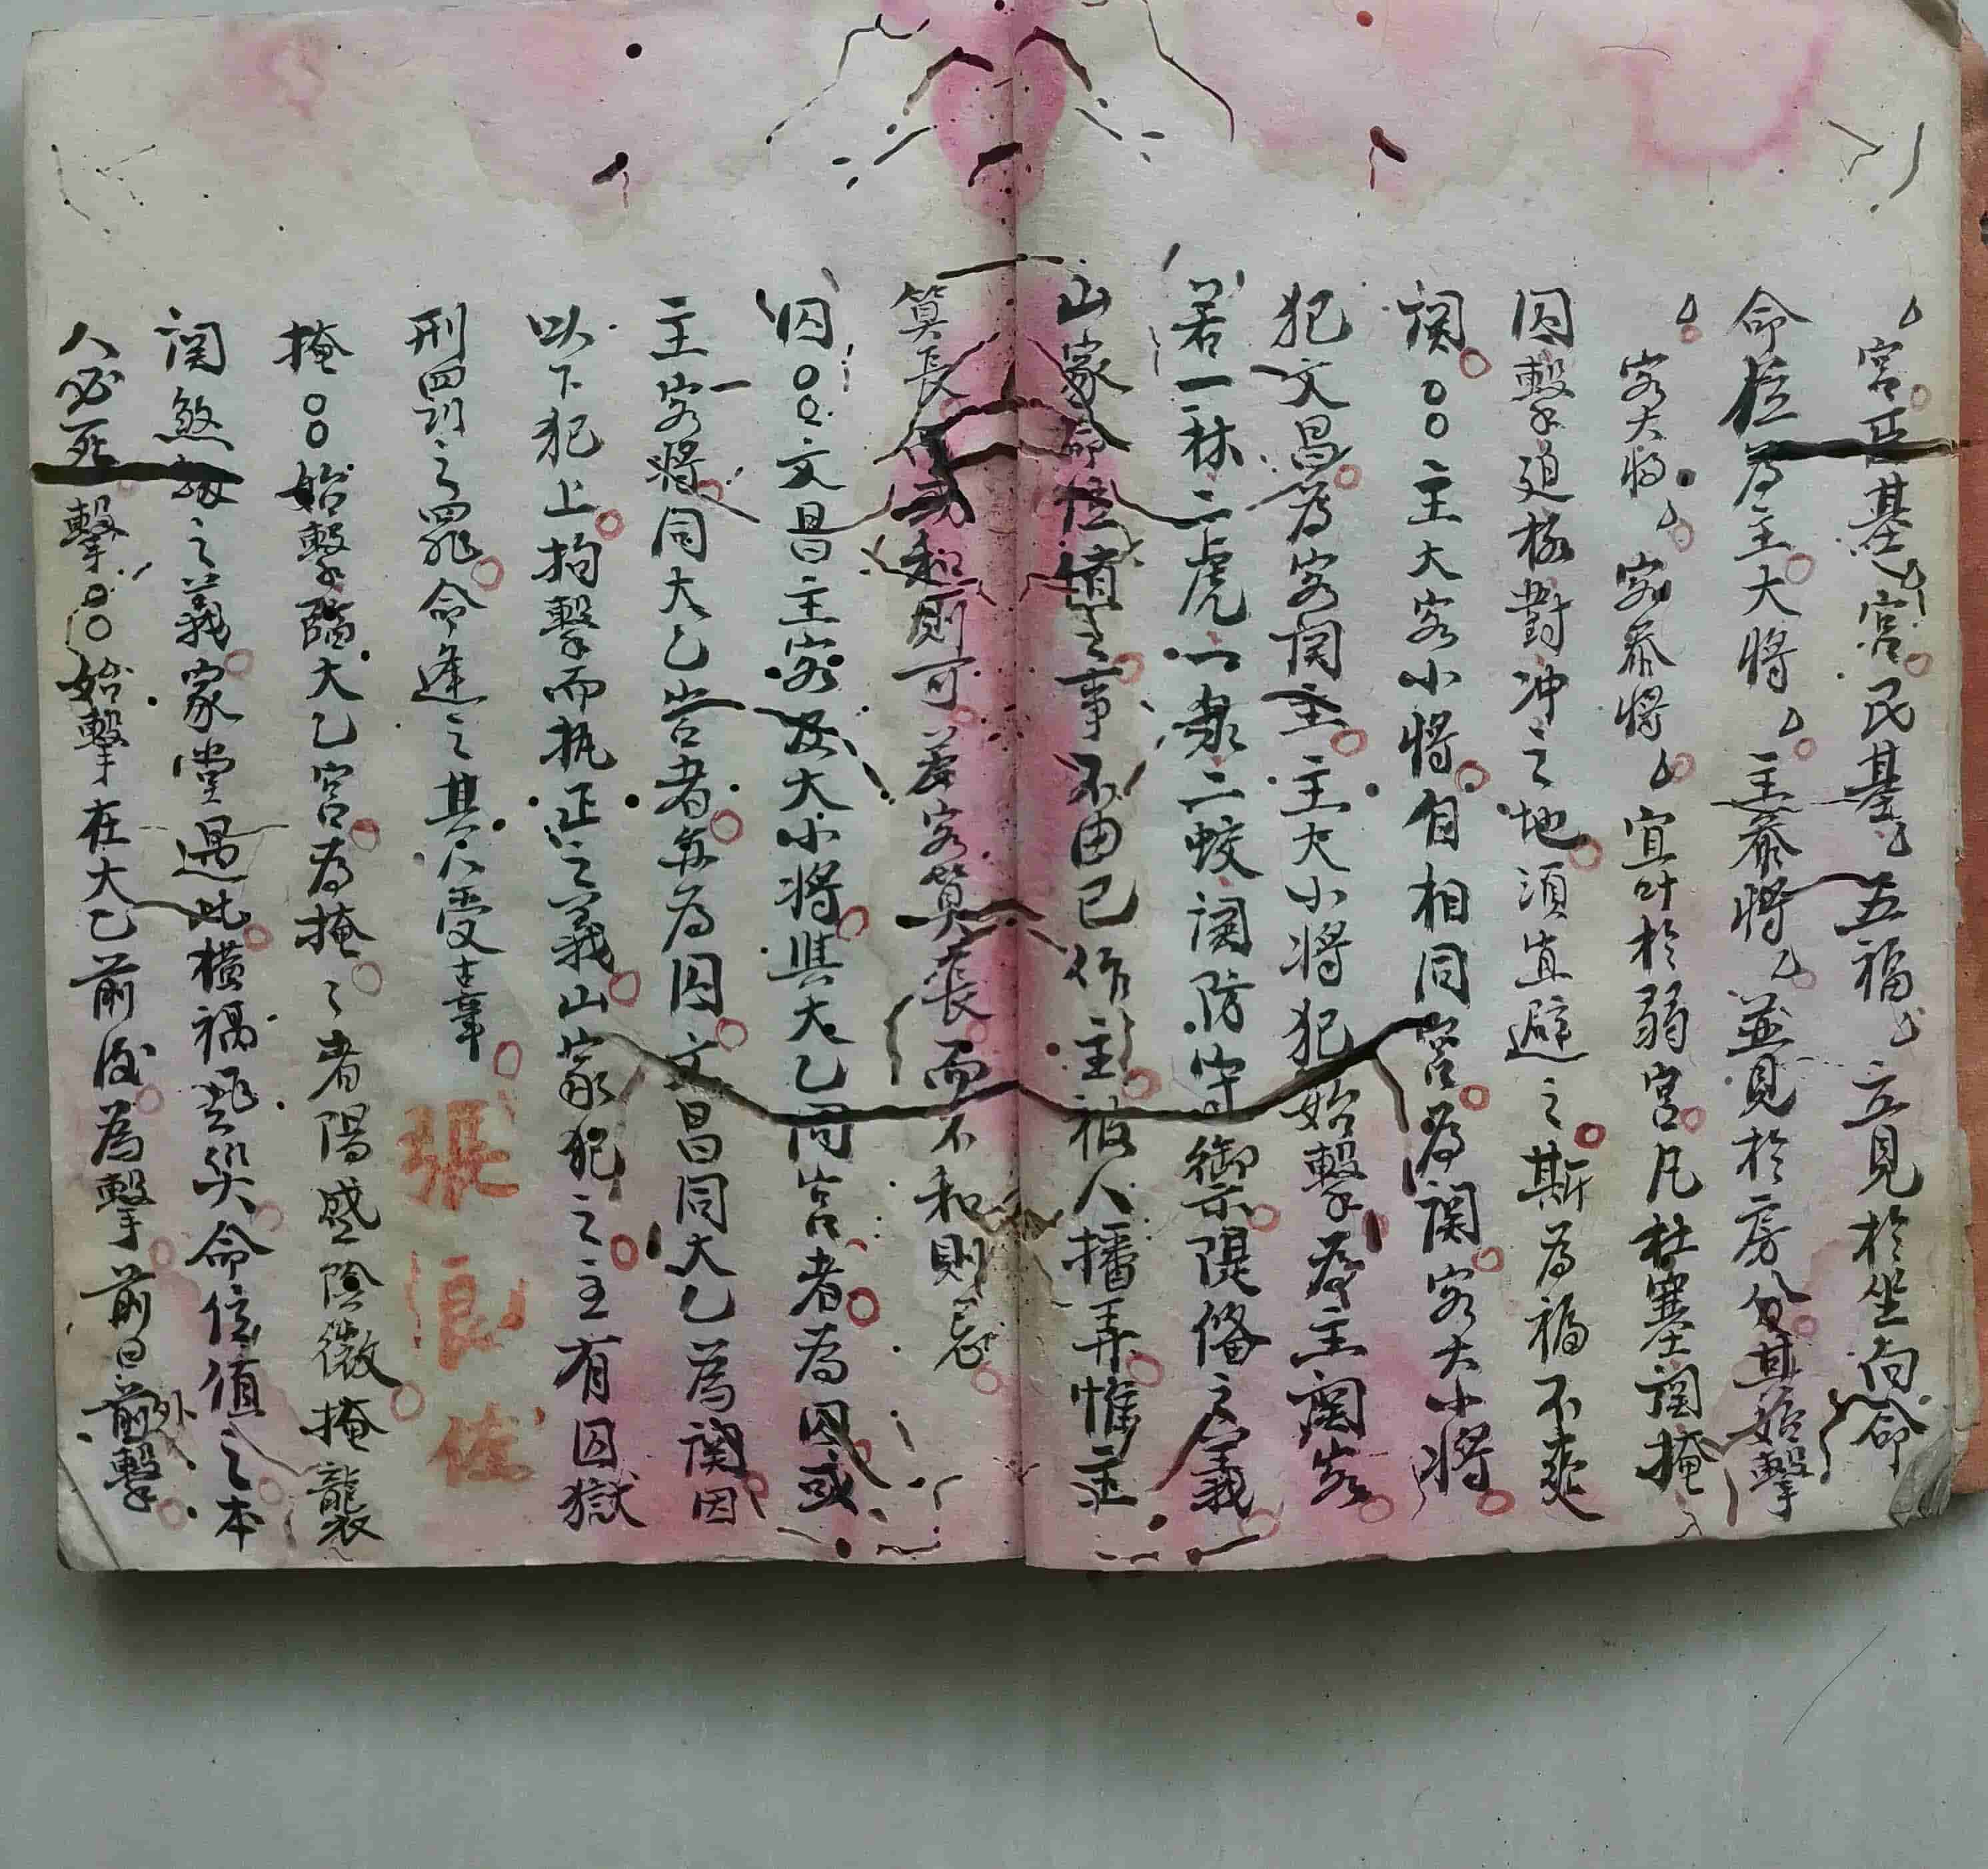 宮臣基宮民基五福立見於坐向命
命位為主大將主參將並見於房分其始擊
客大將客參將宜叶於弱宮凡杜塞関掩
囚擊迫格對冲之地須宜避之斯為福不爽
関〇〇主大客小將自相同宮為関客大小將
犯文昌為客関主主大小將犯始擊為主関客
若一林二虎一泉二蛟関防守禦隄俻之義
山家命位值之事不由已作主被人播弄惟主
算長和則可若客算長而不和則忌
囚〇〇文昌主客及大小將與大乙同宫者為囚或
主客將同大乙宫者為囚文昌同大乙為関因
以下犯上拘擊而执正之義山家犯之主有囚獄
刑罰之罪命逢之其人受辜
掩〇〇始擊臨大乙宮為掩掩者陽盛陰微掩襲
関煞之義家堂遇此橫禍飛災命位值之本
人必死擊〇〇始擊在大乙前後為擊前曰外擊
張良佐